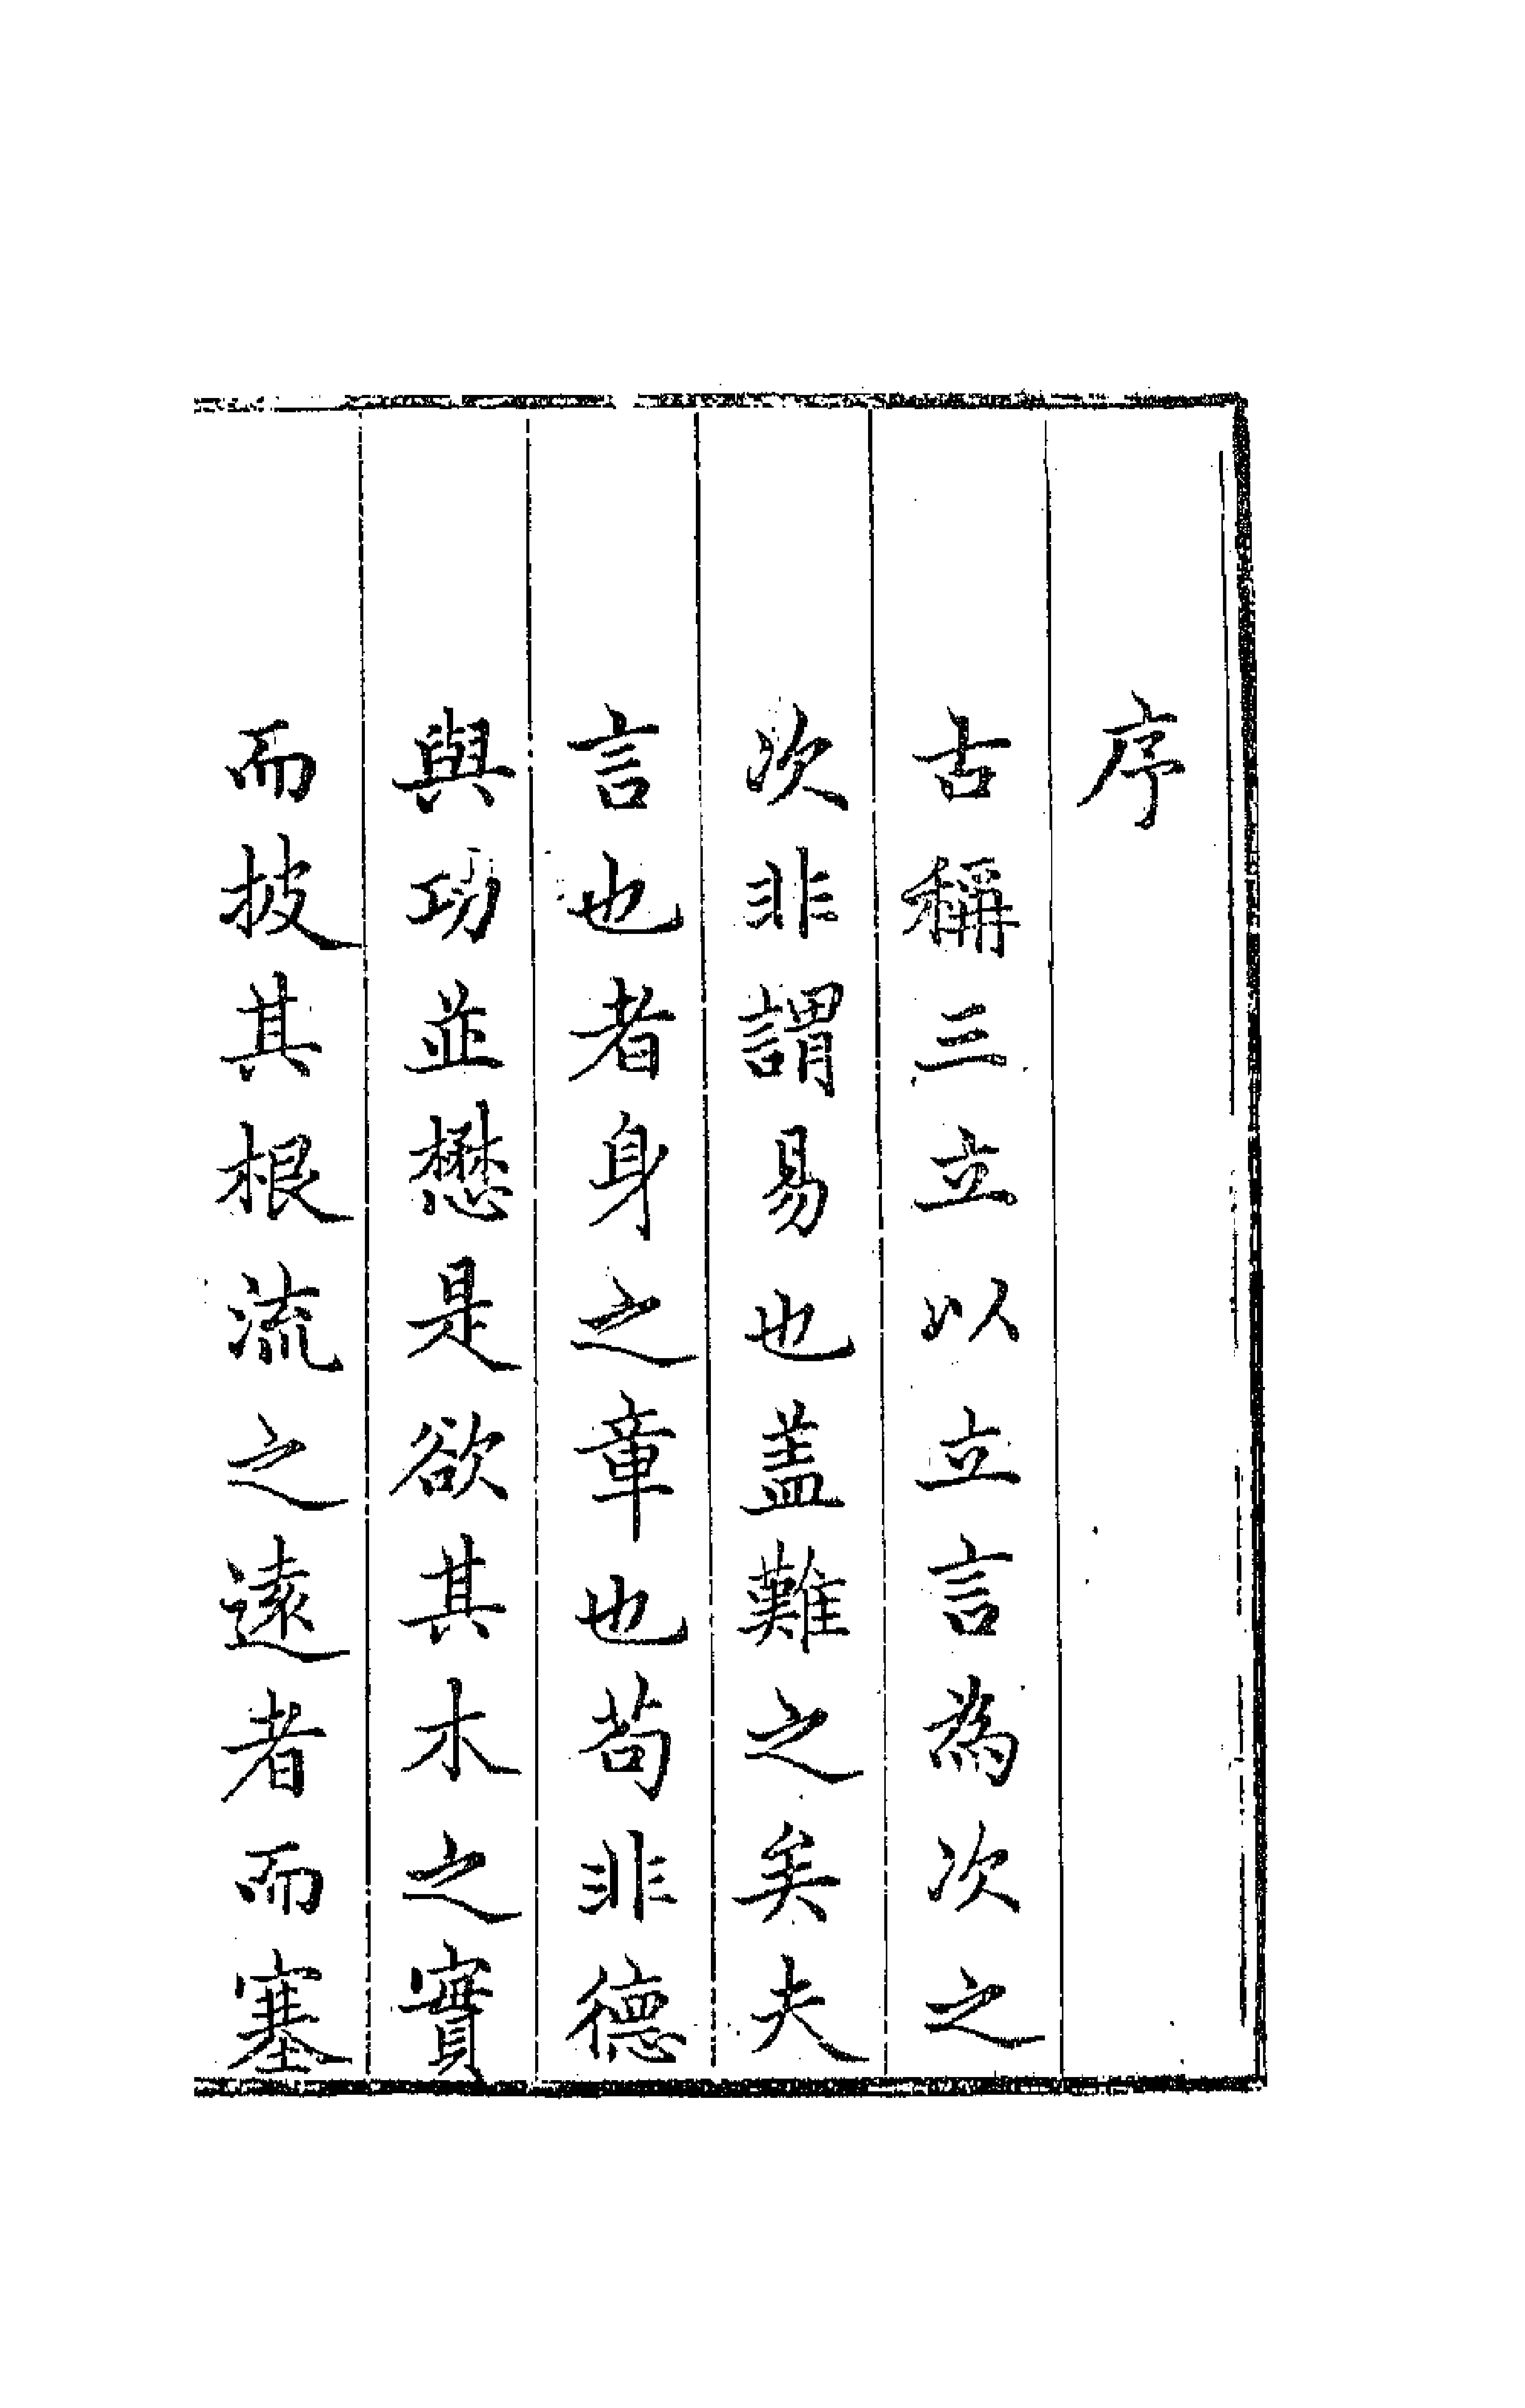 序
古稱三立以立言為次之
次非謂易也蓋難之矣夫
言也者身之章也苟非德
與功並懋是欲其木之實
而披其根流之遠者而塞